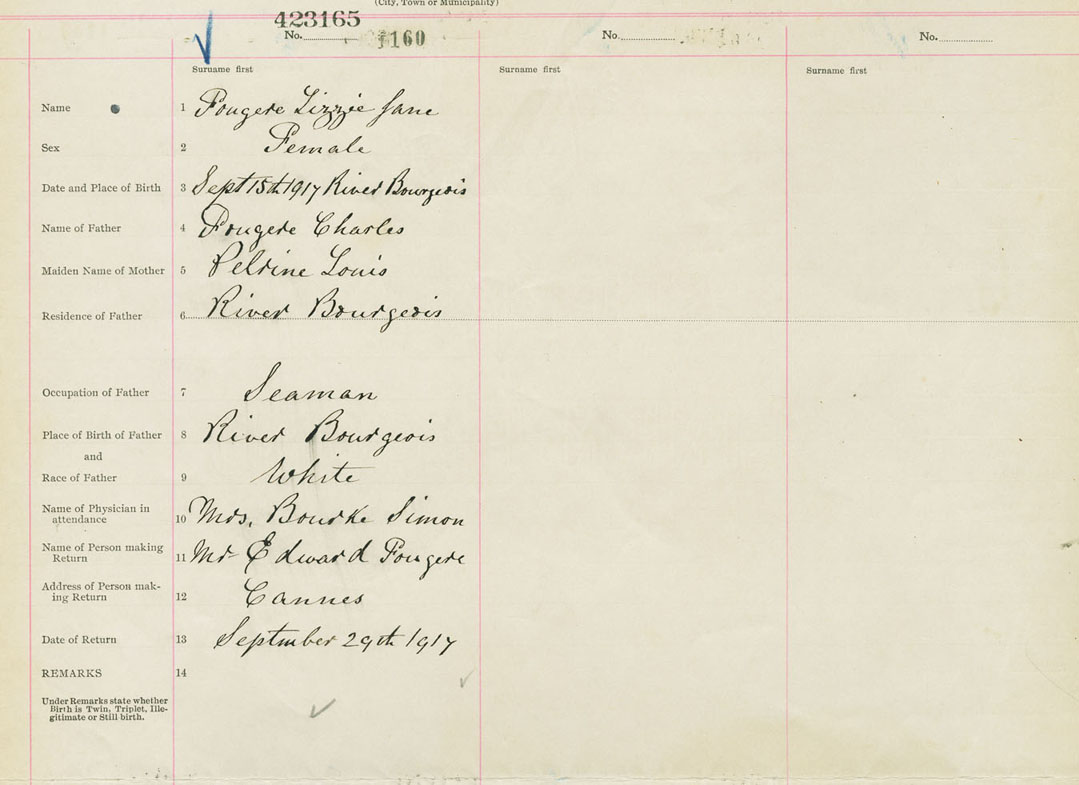 (City, Town or Municipality)
423165
No. 160 No. No.
Surname first Surname first Surname first
Name 1 Fougere Lizzie Jane
Sex 2 Female
Date and Place of Birth 3 Sept 15th 1917 River Bourgeois
Name of Father 4 Fougere Charles
Maiden Name of Mother 5 Pelrine Louis
Residence of Father 6 River Bourgeois
Occupation of Father 7 Seaman
Place of Birth of Father 8 River Bourgeois
and
Race of Father 9 White
Name of Physician in
attendance 10 Mrs. Bourke Simon
Name of Person making
Return 11 Mr Edward Fougere
Address of Person mak-
ing Return 12 Cannes
Date of Return 13 Septmber 29th 1917
REMARKS 14
Under Remarks state whether
Birth is Twin, Triplet, Ille-
gitimate or Still-birth.